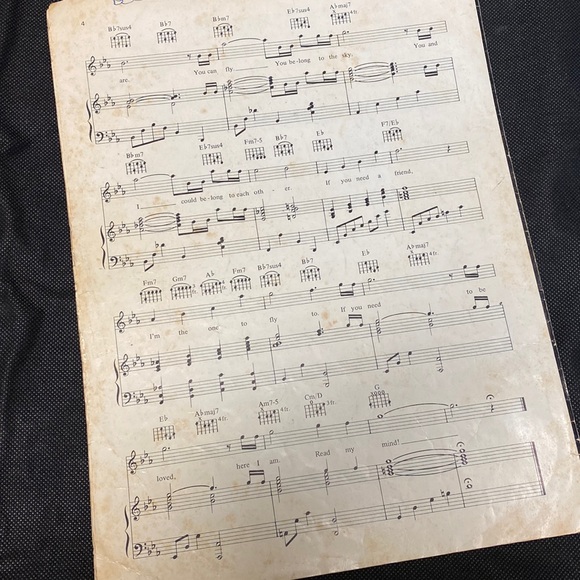 4
B♭7sus4 B♭7 B♭m7 E♭7sus4 A♭maj7
4 fr.
are. You can fly You be-long to the sky. You and
B♭m7 E♭7sus4 Fm7-5 B♭7 E♭ F7/E♭
I could be-long to each oth - er. If you need a friend,
Fm7 Gm7 A♭ Fm7 B♭7sus4 B♭7 E♭ A♭maj7
4 fr.
I'm the one to fly to. If you need to be
E♭ A♭maj7 Am7-5 Cm/D G
4 fr. 4 fr. 3 fr.
loved, here I am. Read my mind!